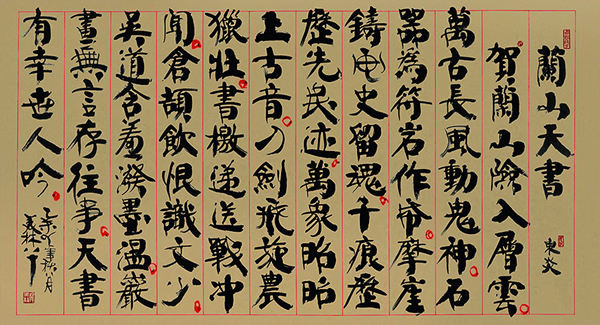 蘭山天書 東炎
賀蘭山險入層雲
萬古長風動鬼神石
器為符岩作帋摩崖
鑄史留魂千痕歷
歷先民迹萬象昭昭
上古音刀劍飛旋農
獵壯書檄遞送戰冲
聞倉頡飲恨識文少
吳道含羞潑墨温巖
畫無言存往事天書
有幸世人吟